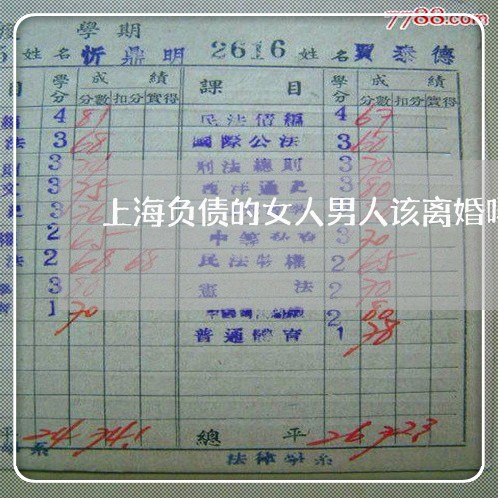 7788.com
學期
姓名 忻鼎明 2616 姓名 賈泰德
目 學分 成績 課目 學分 成績
分數 扣分 實得 分數 扣分 實得
4 81 民法債編 4 67
法 3 68 國際公法 3 60
3 刑法總則 3 70
3 75 西洋通史 3 80
上海负债的女人男人该离婚吗
2 65 3 70
法 2 68 68 民法物權 2 65
3 80 憲法 2 70
1 70 2 80
普通體育 1 78
平 24 74.1 總平 26 72.3
系 法律學系